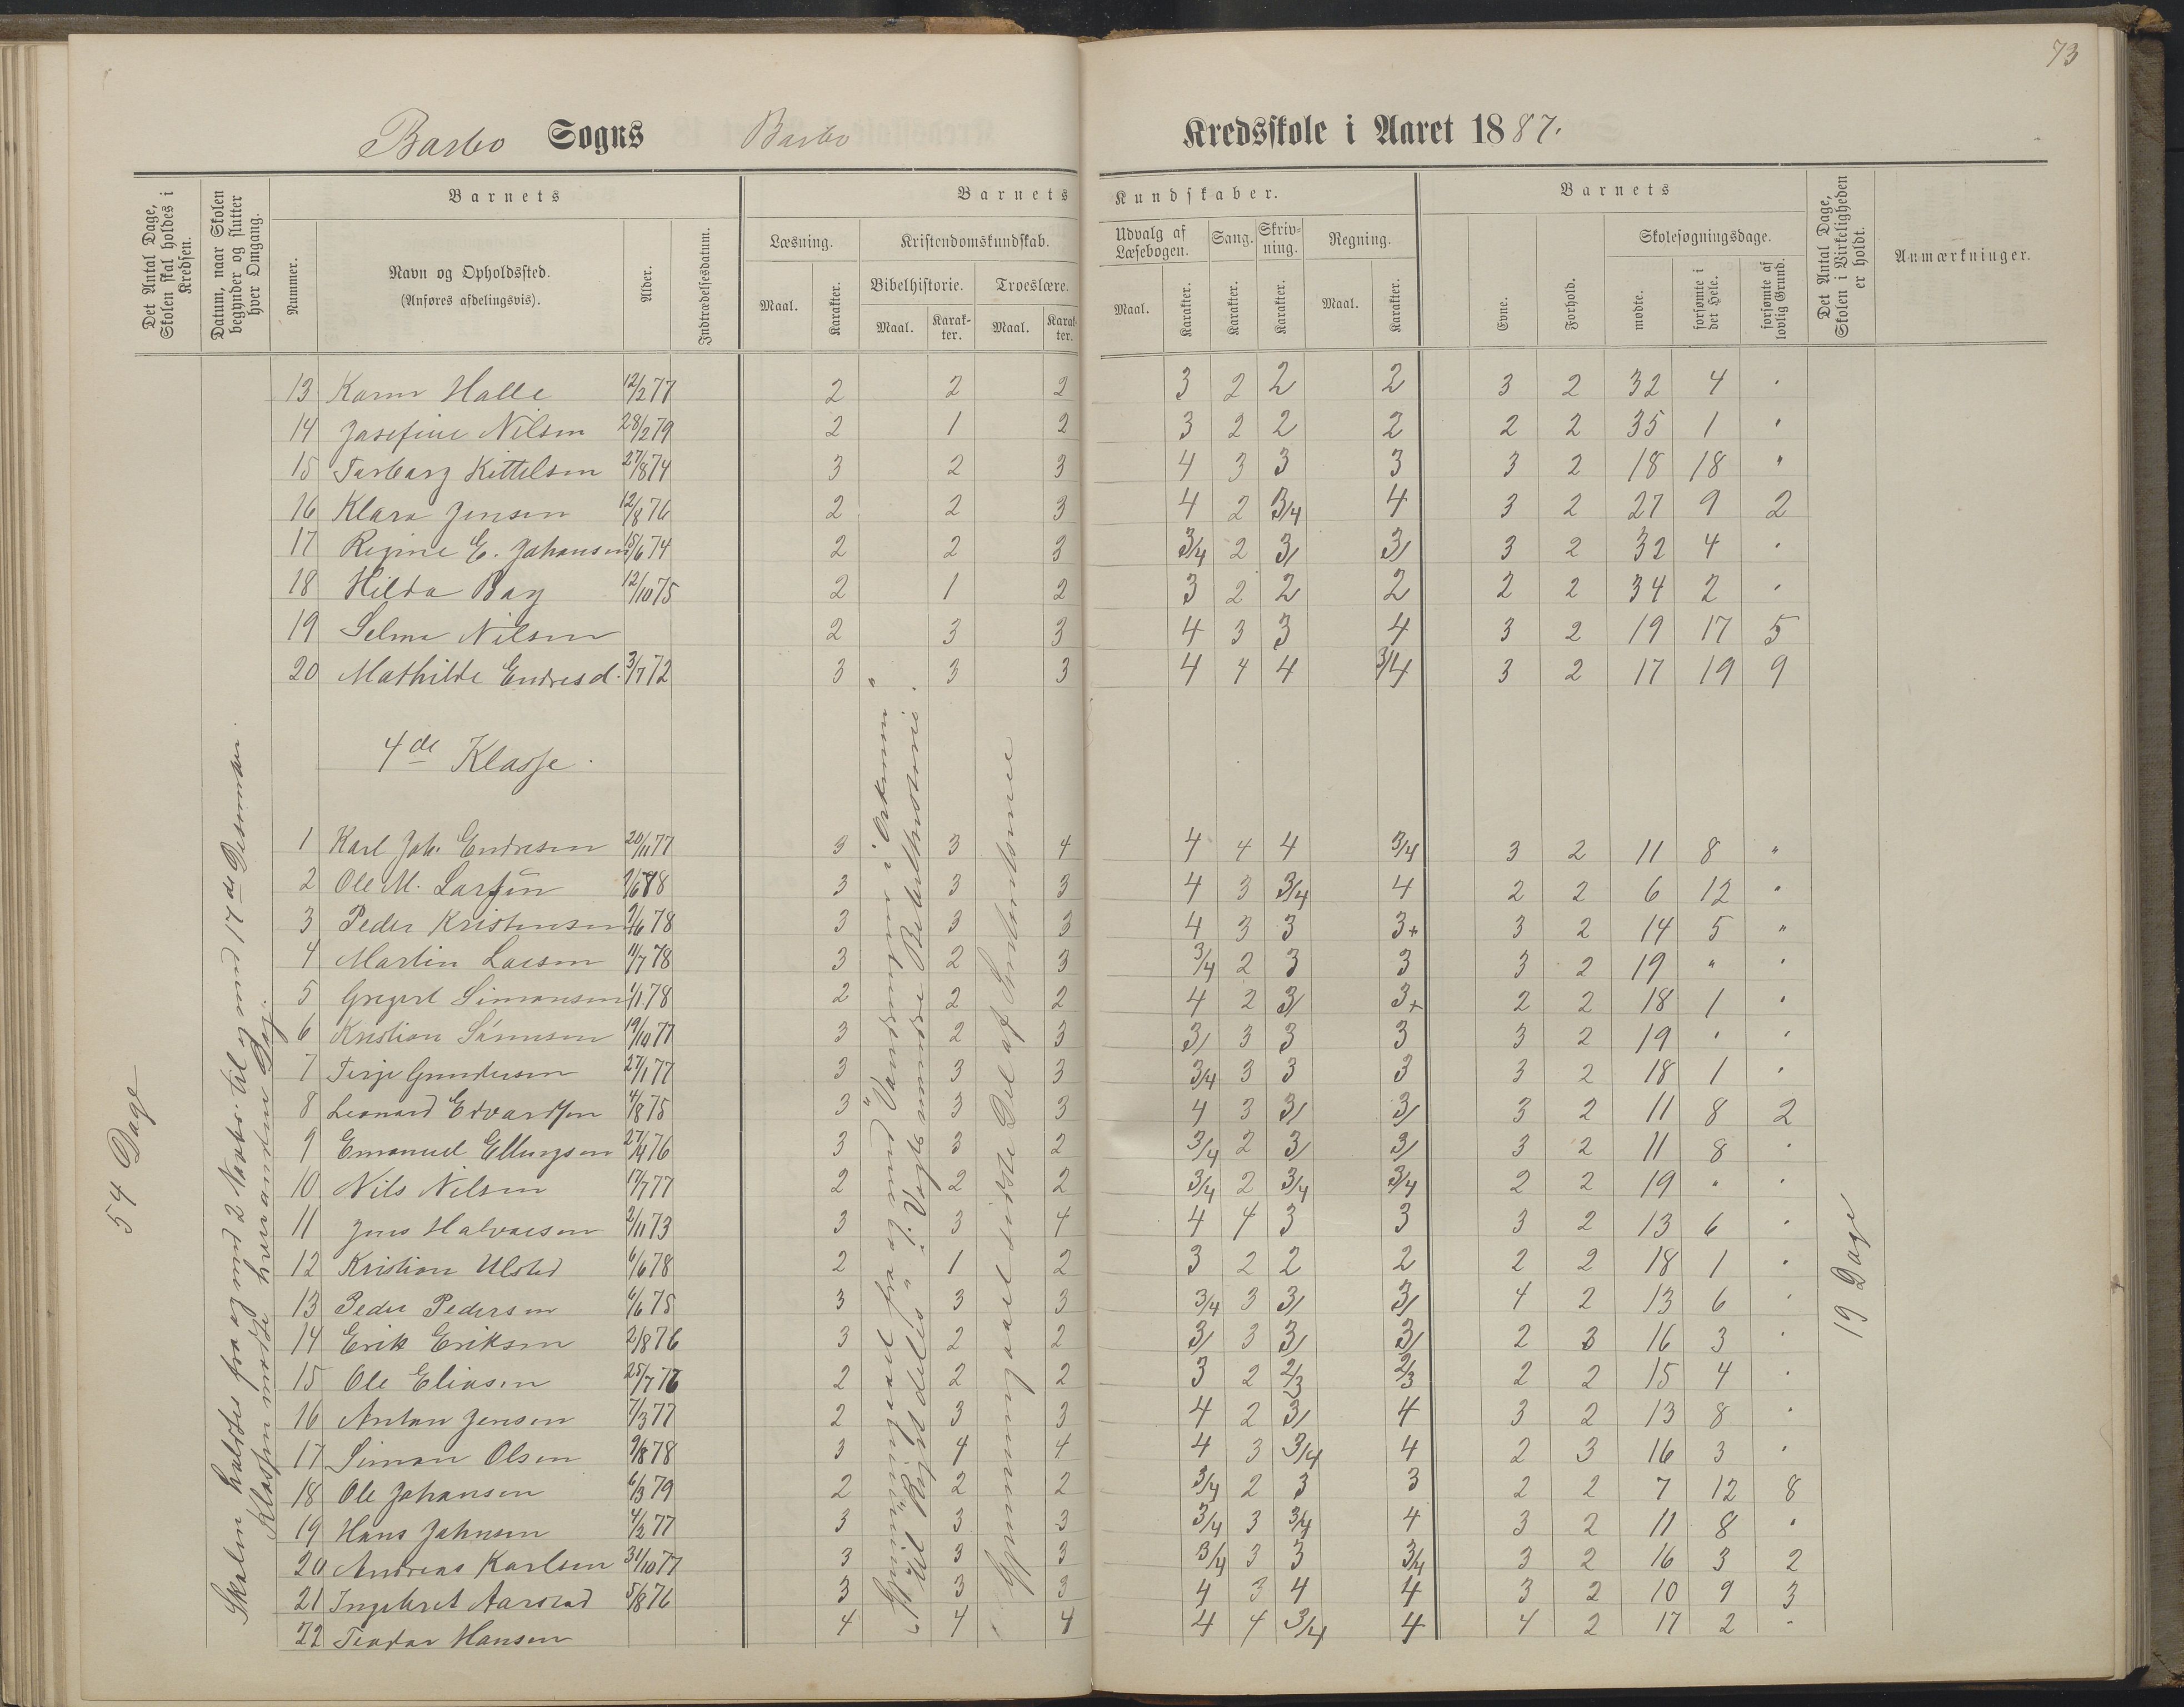 73
Barbo Sogns Barbo Kredsskole i Aaret 1887.
Det Antal Dage, Skolen skal holdes i Kredsen.
Datum, naar Skolen begynder og slutter hver Omgang.
Barnets
Nummer.
Navn og Opholdssted.
(Anføres afdelingsvis).
Alder.
Indtrædelsesdatum.
Barnets Kundskaber.
Læsning.
Maal. Karakter.
Kristendomskundskab.
Bibelhistorie. Troeslære.
Maal. Karakter. Maal. Karakter.
Udvalg af Læsebogen.
Maal. Karakter.
Sang.
Karakter.
Skrivning.
Karakter.
Regning.
Maal. Karakter.
Barnets
Evne. Forhold.
Skolesøgningsdage.
mødte. forsømte i det Hele. forsømte af lovlig Grund.
Det Antal Dage, Skolen i Virkeligheden er holdt.
Anmærkninger.
13 Karen Halle 12/2 77 2 2 2 3 2 2 2 3 2 32 4 .
14 Josefine Nilsen 28/2 79 2 1 2 3 2 2 2 2 2 35 1 "
15 Torborg Kittelsen 27/8 74 3 2 3 4 3 3 3 3 2 18 18 "
16 Klara Jensen 12/8 76 2 2 3 4 2 3/4 4 3 2 27 9 2
17 Regine E. Johansen 15/6 74 2 2 3 3/4 2 3/ 3/ 3 2 32 4 .
18 Hilda Bay 12/10 75 2 1 2 3 2 2 2 2 2 34 2 .
19 Selma Nilsen 2 3 3 4 3 3 4 3 2 19 17 5
20 Mathilde Endresd. 3/7 72 3 3 3 4 4 4 3/4 3 2 17 19 9
4de Klasse.
1 Karl Joh. Endresen 20/11 77 3 3 4 4 4 4 3/4 3 2 11 8 "
2 Ole M. Larsen 78 3 3 3 4 3 3/4 4 2 2 6 12 "
3 Peder Kristensen 9/6 78 3 3 3 4 3 3 3+ 3 2 14 5 "
4 Martin Larsen 11/7 78 3 2 3 3/4 2 3 3 3 2 19 " .
5 Gregert Simonsen 1/1 78 2 2 2 4 2 3/ 3+ 2 2 18 1 "
6 Kristian Sørensen 19/10 77 3 2 3 3/ 3 3 3 3 2 19 . .
7 Terje Gundersen 27/1 77 3 3 3 3/4 3 3 3 3 2 18 1 .
8 Leonard Edvardsen 4/8 75 3 3 3 4 3 3/ 3/ 3 2 11 8 2
9 Emanuel Ellingsen 27/4 76 3 3 2 3/4 2 3/ 3/ 3 2 11 8 .
10 Nils Nilsen 17/7 77 2 2 2 3/4 2 3/4 3/4 2 2 19 " .
11 Jens Halvorsen 2/11 73 3 3 4 4 4 3 3 3 2 13 6 .
12 Kristian Ulsted 6/6 78 2 1 2 3 2 2 2 2 2 18 1 .
13 Peder Pedersen 6/6 75 3 3 3 3/4 3 3/ 3/ 4 2 13 6 .
14 Erik Eriksen 2/8 76 3 2 2 3/ 3 3/ 3/ 2 3 16 3 .
15 Ole Eliasen 25/7 76 2 2 2 3 2 2/3 2/3 2 2 15 4 .
16 Anton Jensen 7/3 77 2 3 3 4 2 3/ 4 3 2 13 8 .
17 Simon Olsen 9/8 78 3 4 4 4 3 3/4 4 2 3 16 3 .
18 Ole Johansen 6/3 79 2 2 2 3/4 2 3 3 2 2 7 12 8
19 Hans Johnsen 4/2 77 3 3 3 3/4 3 3/4 4 3 2 11 8 .
20 Andreas Karlsen 31/10 77 3 3 3 3/4 3 3 3/4 3 2 16 3 2
21 Ingebret Aarstad 5/8 76 3 3 3 4 3 4 4 3 2 10 9 3
22 Teodor Hansen 4 4 4 4 4 3/4 4 4 2 17 2 .
54 Dage
Skolen holdtes fra og med 2 Novbr. til og med 17de Desember.
Klassen mødte hver anden Dag.
Gjennemgaaet fra og med "Vandringen i Ørkenen"
til Rigets deling" i Vogts mindre Bibelhistorie.
Gjennemgaaet sidste Del af
19 Dage